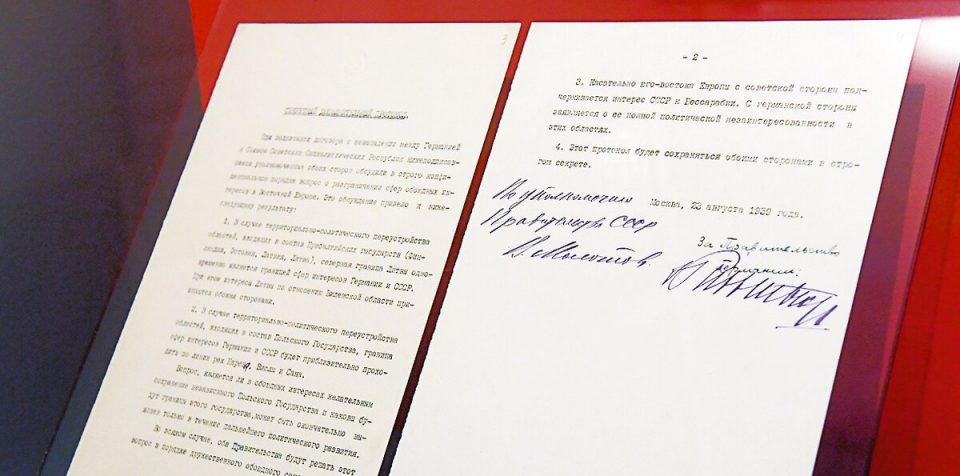 3
СЕКРЕТНЫЙ ДОПОЛНИТЕЛЬНЫЙ ПРОТОКОЛ.
При подписании договора о ненападении между Германией
и Союзом Советских Социалистических Республик нижеподписав-
шиеся уполномоченные обеих сторон обсудили в строго конфи-
денциальном порядке вопрос о разграничении сфер обоюдных ин-
тересов в Восточной Европе. Это обсуждение привело к ниже-
следующему результату:
1. В случае территориально-политического переустройства
областей, входящих в состав Прибалтийских государств (Фин-
ляндия, Эстония, Латвия, Литва), северная граница Литвы одно-
временно является границей сфер интересов Германии и СССР.
При этом интересы Литвы по отношению Виленской области при-
знаются обеими сторонами.
2. В случае территориально-политического переустройства
областей, входящих в состав Польского Государства, граница
сфер интересов Германии и СССР будет приблизительно прохо-
дить по линии рек Нарева, Вислы и Сана.
Вопрос, является ли в обоюдных интересах желательным
сохранение независимого Польского Государства и каковы бу-
дут границы этого государства, может быть окончательно вы-
яснен только в течение дальнейшего политического развития.
Во всяком случае, оба Правительства будут решать этот
вопрос в порядке дружественного обоюдного
4
- 2 -
3. Касательно юго-востока Европы с советской стороны под-
черкивается интерес СССР к Бессарабии. С германской стороны
заявляется о ее полной политической незаинтересованности в
этих областях.
4. Этот протокол будет сохраняться обеими сторонами в стро-
гом секрете.
Москва, 23 августа 1939 года.
По уполномочию
Правительства СССР
В. Молотов.
За Правительство
Германии: